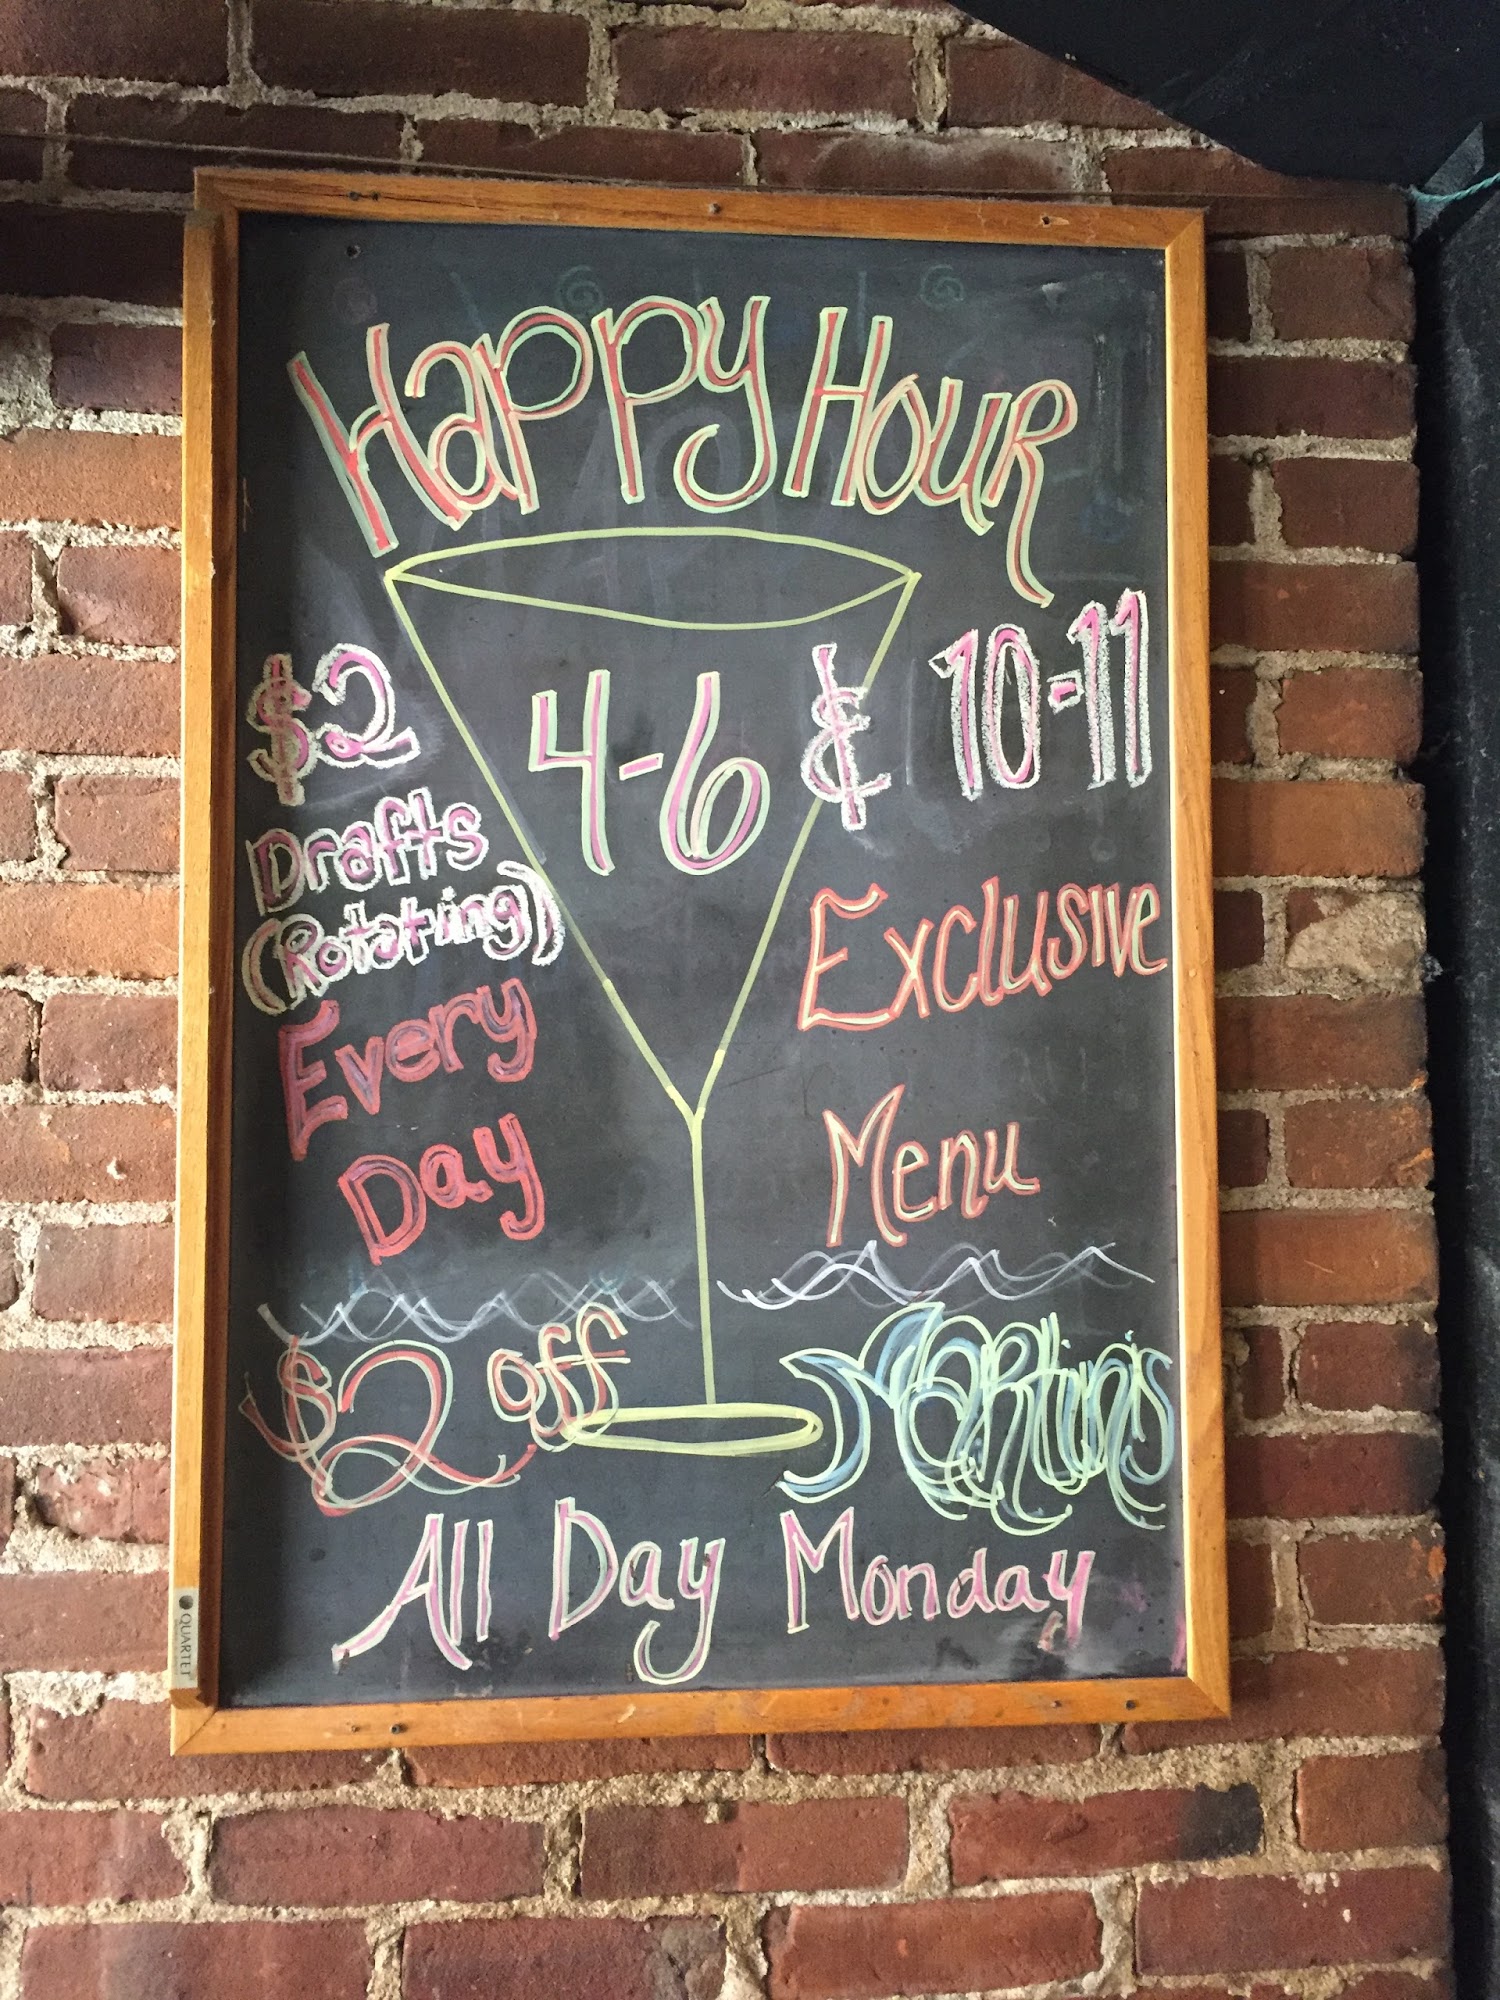 Happy Hour
4-6 & 10-11
$2
Drafts
(Rotating)
Every
Day
Exclusive
Menu
$2 off Martini's
All Day Monday
QUARTET